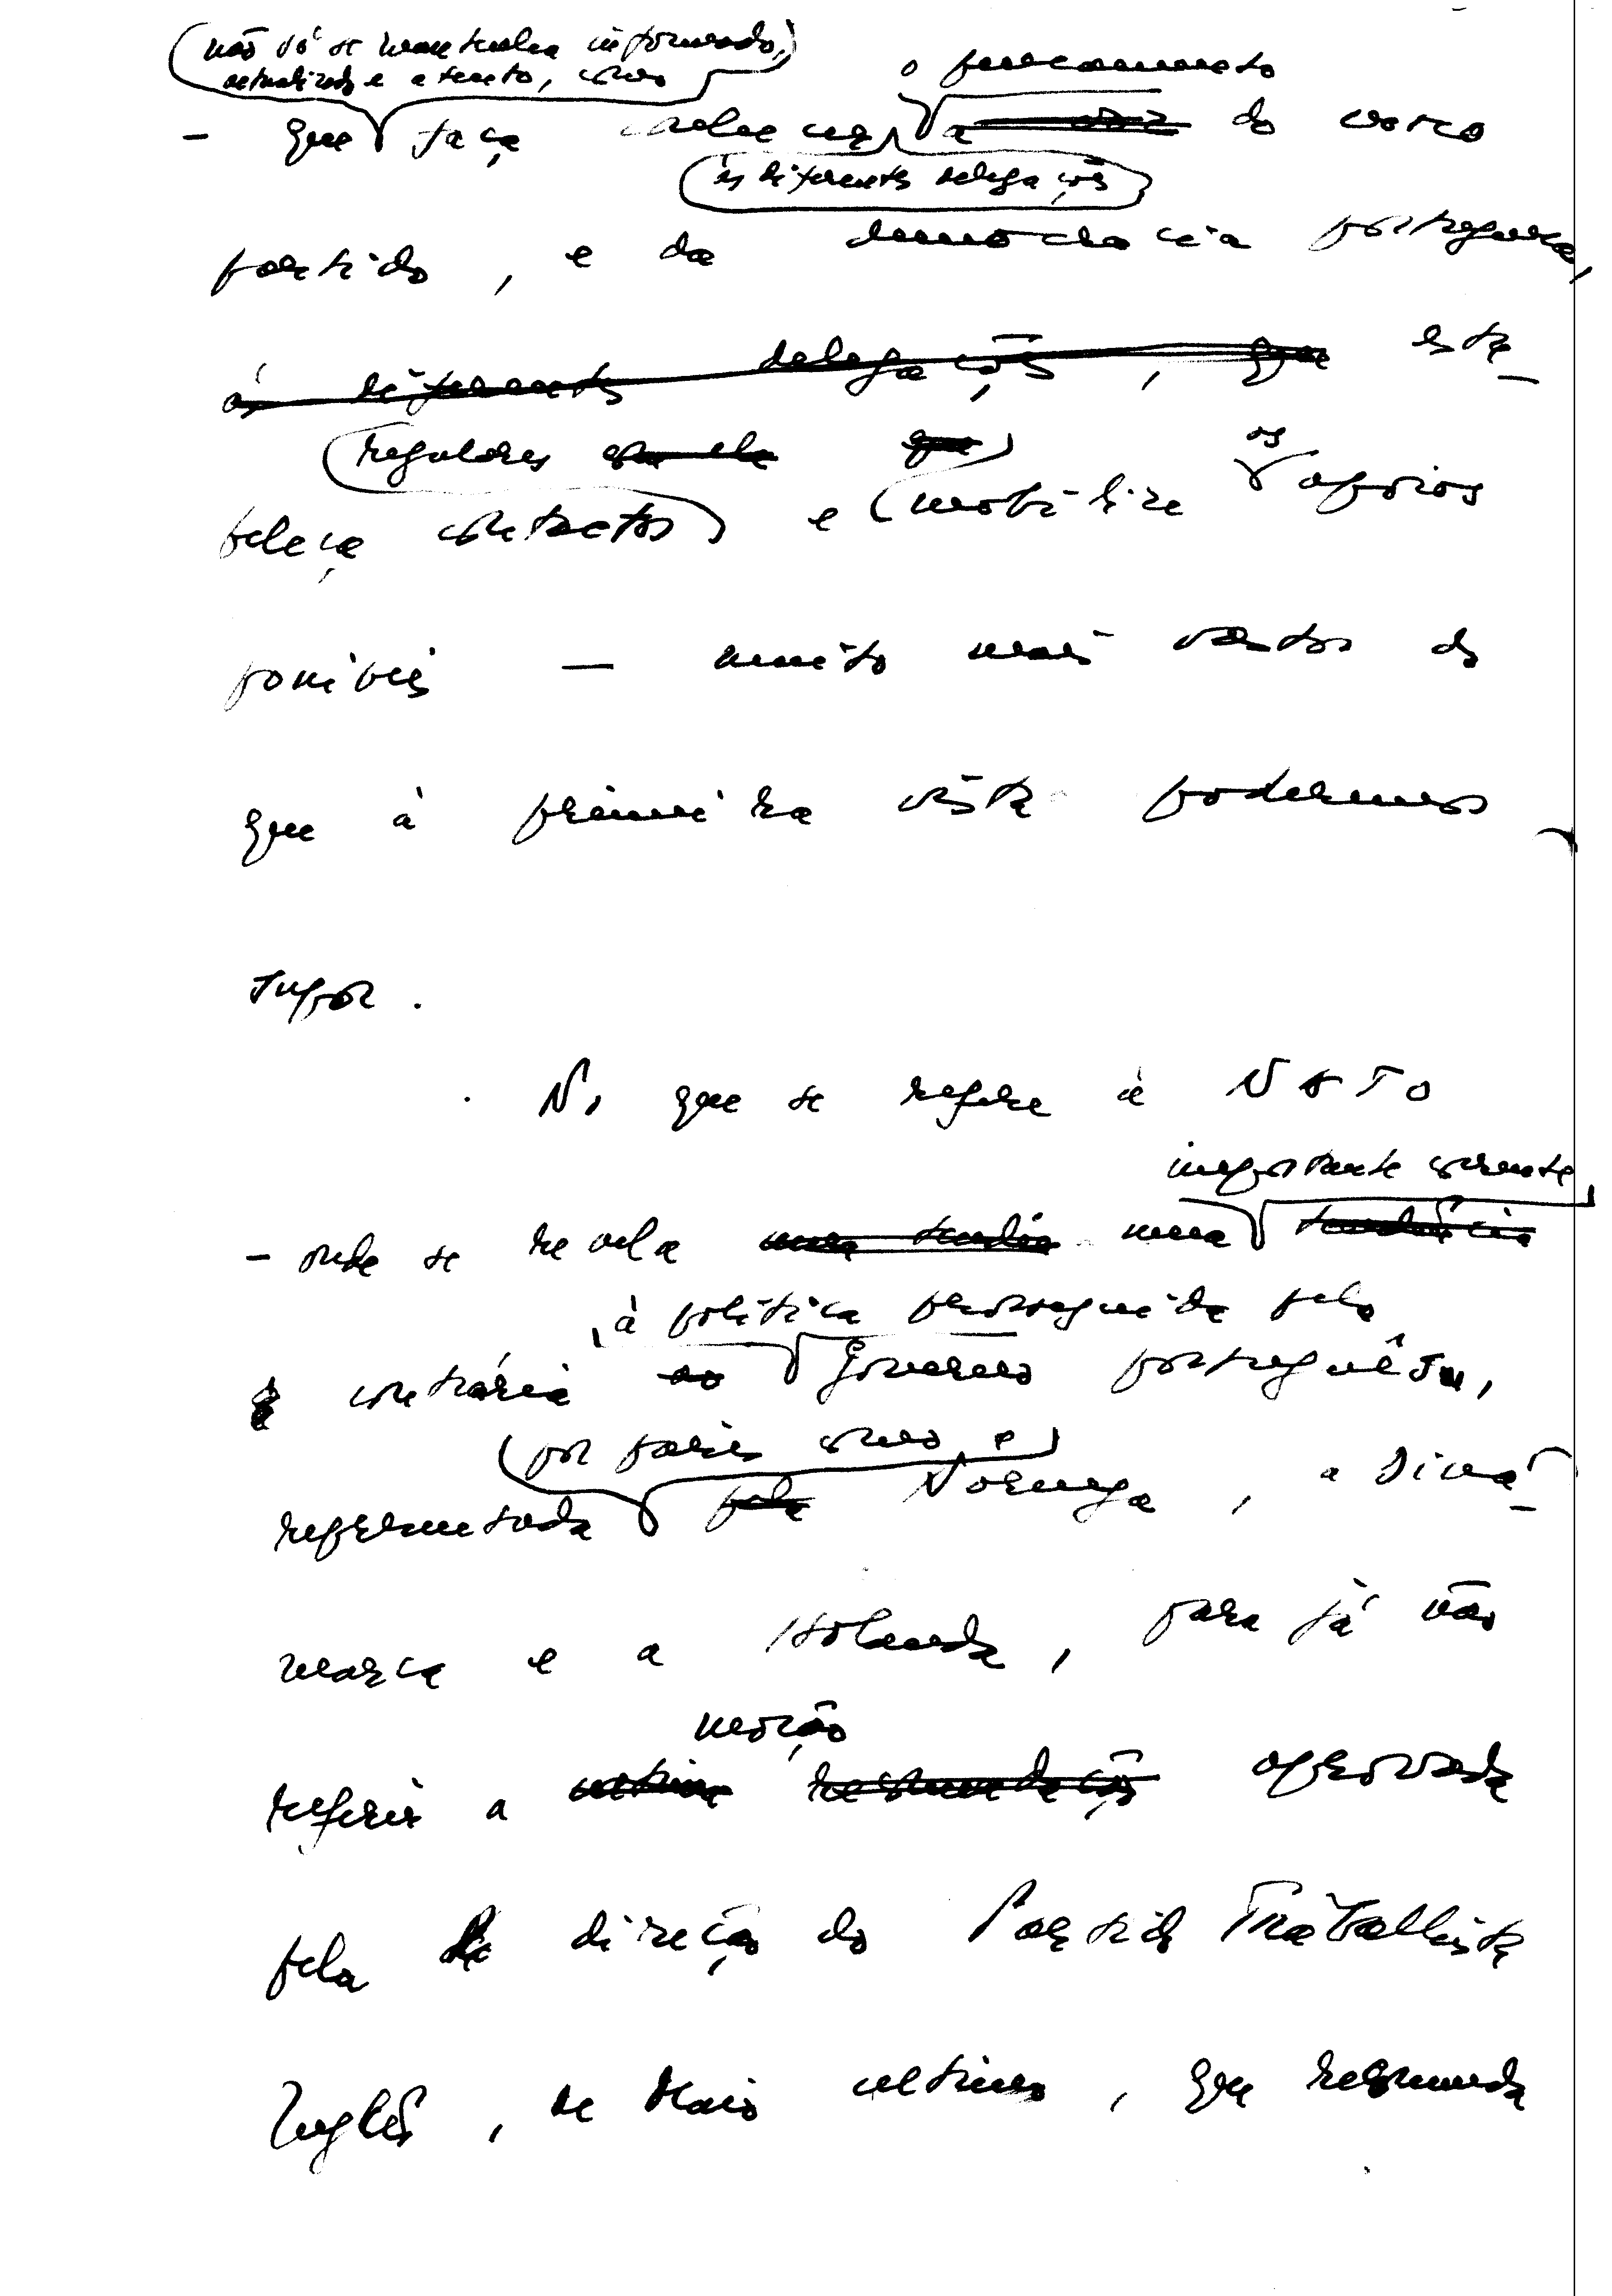 não só se mantenha informado,
actualizado e atento, como
o pensamento
- que faça conhecer a voz do nosso
às diferentes delegações
partido, e da democracia portuguesa,
às diferentes delegações, que esta-
regulares com ela que os
beleça contactos e mobilize apoios
poníveis — muito mais vastos do
que à primeira vista poderemos
supor.
. No que se refere à NATO
importante corrente,
- onde se revela uma tendên uma tendência
, à política prosseguida pelo
contrária ao Governo português,
por países como, e
representada pela Noruega, a Dina-
marca e a Holanda, para já não
moção
referir a última recomendação aprovada
pela direcção do Partido Trabalhista
Inglês, de Maio último, que recomenda